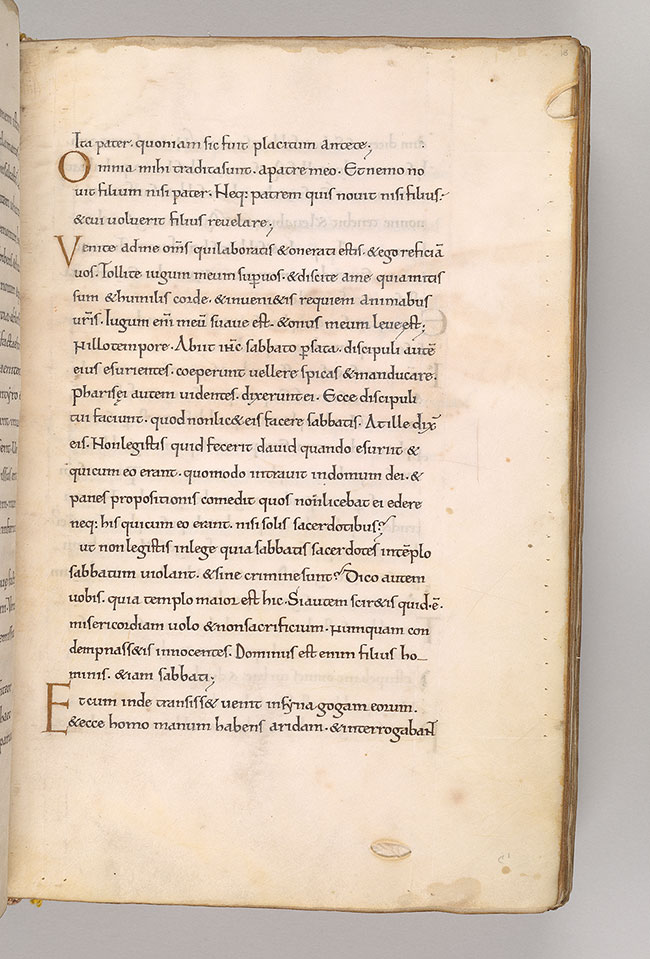 Ita pater. quoniam sic fuit placitum ante te;
Omnia mihi tradita sunt. a patre meo. Et nemo no
uit filium nisi pater. Neq: patrem quis nouit nisi filius.
& cui uoluerit filius reuelare;
Venite ad me om̄s qui laboratis & onerati estis. & ego reficiā
uos. Tollite iugum meum sup uos. & discite a me quia mitis
sum & humilis corde. & inueni&is requiem animabus
ur̄is. Iugum eni̅ meū suaue est. & onus meum leue est;
N illo tempore. Abiit ihc̄ sabbato p sata. discipuli autē
eius esurientes. coeperunt uellere spicas & manducare.
Pharisęi autem uidentes. dixerunt ei. Ecce discipuli
tui faciunt. quod non lic&eis facere sabbatis. At ille dix̄
eis. Non legistis quid fecerit dauid quando esuriit &
qui cum eo erant. quomodo intrauit in domum dei. &
panes propositionis comedit quos non licebat ei edere
neq: his qui cum eo erant. nisi solis sacerdotibus?
ut non legistis in lege quia sabbatis sacerdotes in tēplo
sabbatum uiolant. & sine crimine sunt? Dico autem
uobis. quia templo maior est hic. Si autem scir&is quid. ē.
misericordiam uolo & non sacrificium. Numquam con
dempnass&is innocentes. Dominus est enim filius ho_
minis. &iam sabbati;
Et cum inde transiss& uenit in synagogam eorum.
& ecce homo manum habens aridam. & interrogabant